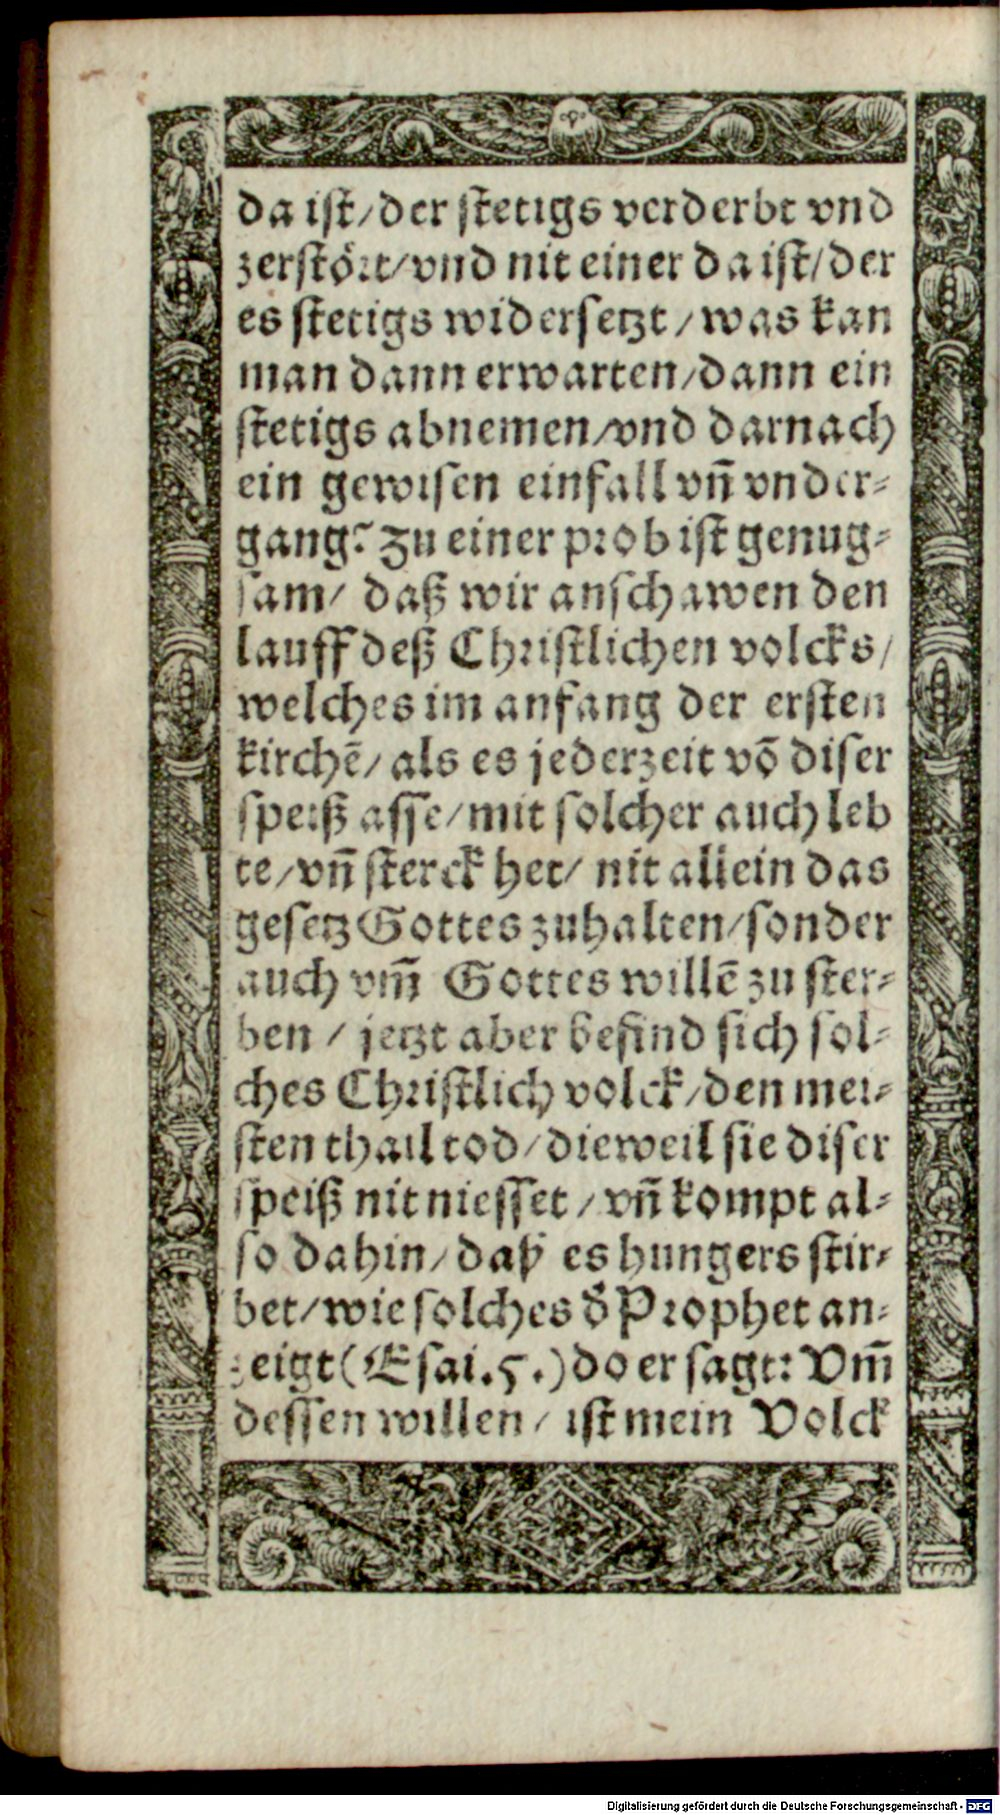 da ist/der stetigs verderbt vnd
zerstört/vnd nit einer da ist/der
es stetigs widersetzt/was kan
man dann erwarten/dann ein
stetigs abnemen/vnd darnach
ein gewisen einfall vñ vnder-
gang? Zu einer prob ist genug-
sam/ daß wir anschawen den
lauff deß Christlichen volcks/
welches im anfang der ersten
kirchē/als es jederzeit vō diser
speiß asse/mit solcher auch leb
te/vñ sterck het/ nit allein das
gesetz Gottes zuhalten/sonder
auch vm̄ Gottes willē zu ster-
ben / jetzt aber befind sich sol-
ches Christlich volck/den mei-
sten thail tod/dieweil sie diser
speiß nit niesset / vñ kompt al-
so dahin/daß es hungers stir-
bet/wie solches d̄ Prophet an-
zeigt(Esai.5.)do er sagt: Vm̄
dessen willen/ ist mein Volck
Digitalisierung gefördert durch die Deutsche Forschungsgemeinschaft - DFG